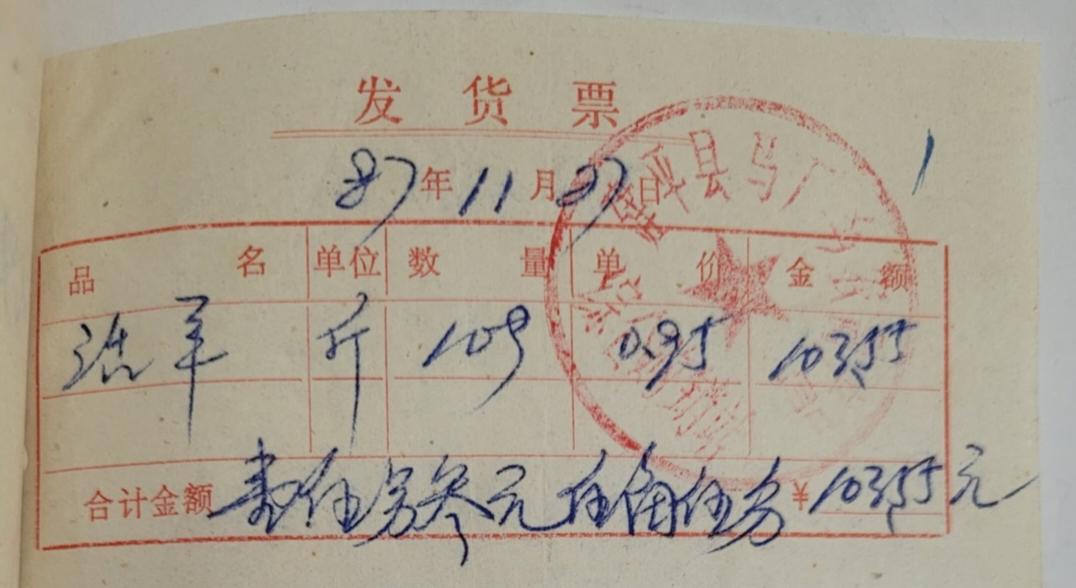 发货票
87年11月27日
平县马厂
品名 单位 数量 单价 金额
活羊 斤 109 0.95 103.55
合计金额 壹佰另叁元伍角伍分 ¥103.55元